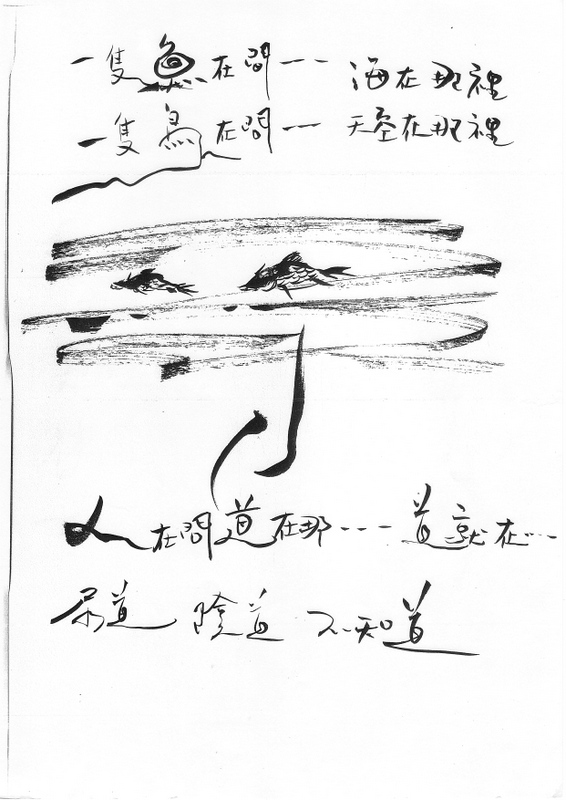 一隻魚在問--- 海在那裡
一隻鳥在問-- 天空在那裡
人在問道在那---- 道就在...--
尿道 陰道 不知道